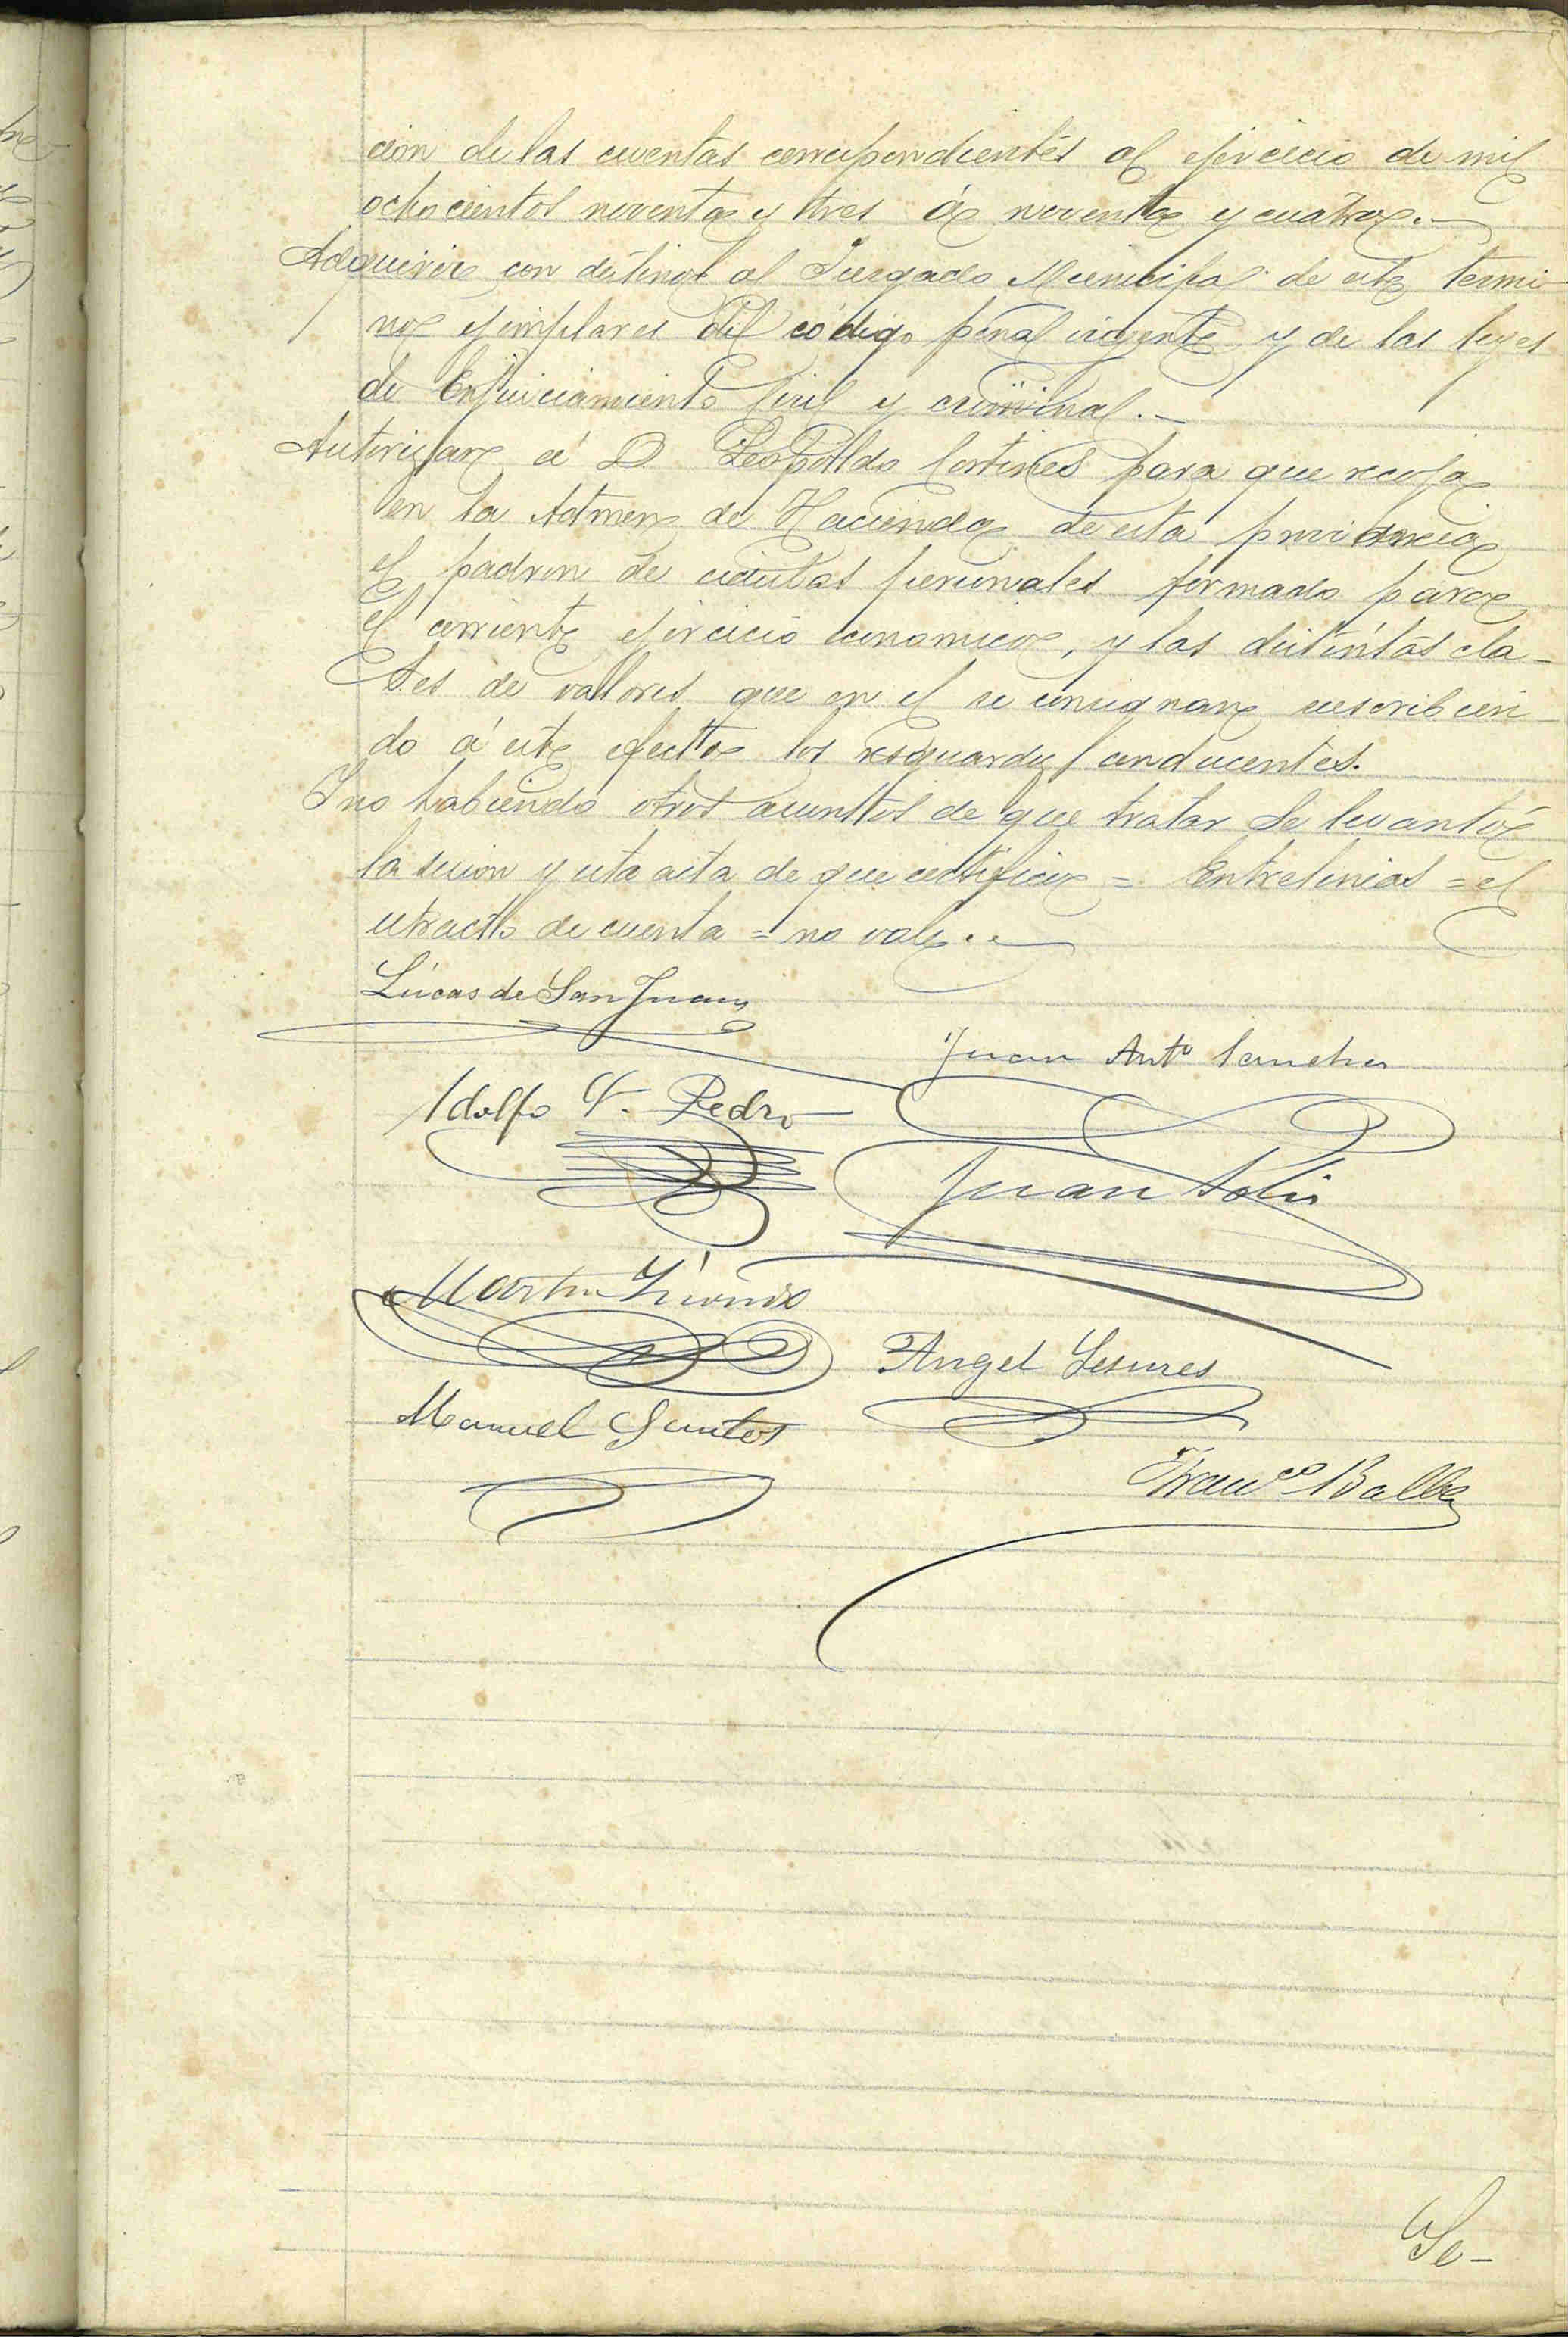 cion de las cuentas correspondientes al ejercicio de mil
ochocientos noventa y tres á noventa y cuatro.—
Adquirir con destino al Juzgado Municipal de este termi-
no ejemplares del código penal vigente y de las leyes
de Enjuiciamiento Civil y criminal.—
Autorizar á D. Leopoldo Cortines para que recoja
en la Admon de Hacienda de esta provincia
el padron de cédulas personales formado para
el corriente ejercicio económico, y las distintas cla-
ses de valores que en el se consignan suscribien-
do á este efecto los resguardos conducentes.
Y no habiendo otros asuntos de que tratar se levantó
la sesion y esta acta de que certifico = Entrelineas = el
extracto de cuenta = no vale.—
Lucas de San Juan
Juan Antº Sanchez
Adolfo V. Pedro
Juan Solis
Martin
Angel Lesmes
Manuel Santos
Francº Balbey
Se-